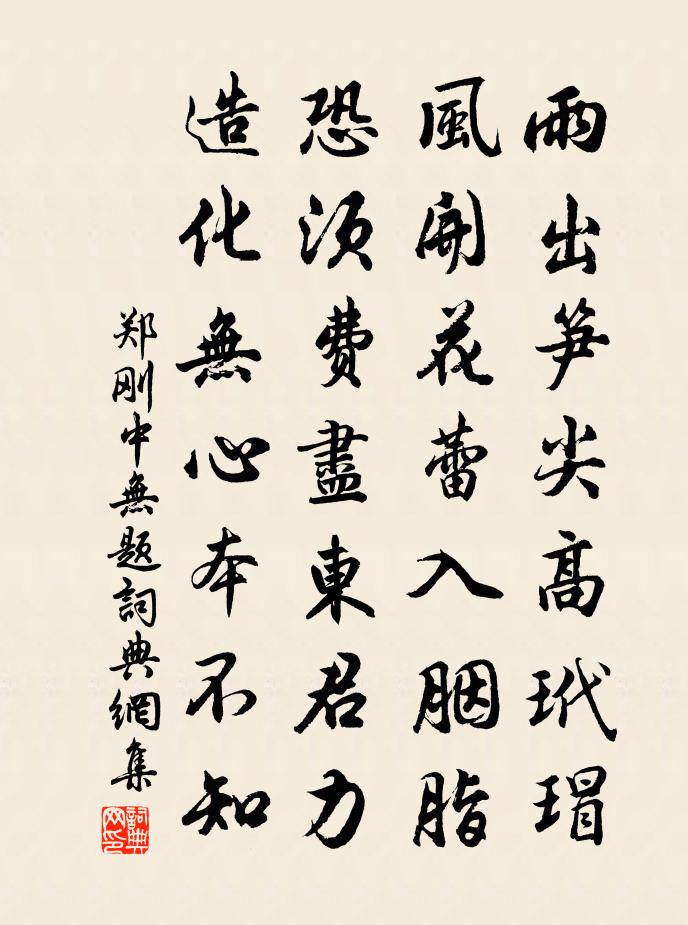 雨出笋尖高玳瑁
風開花蕾入胭脂
恐須費盡東君力
造化無心本不知
郑刚中無题詞典網集
詞典網印